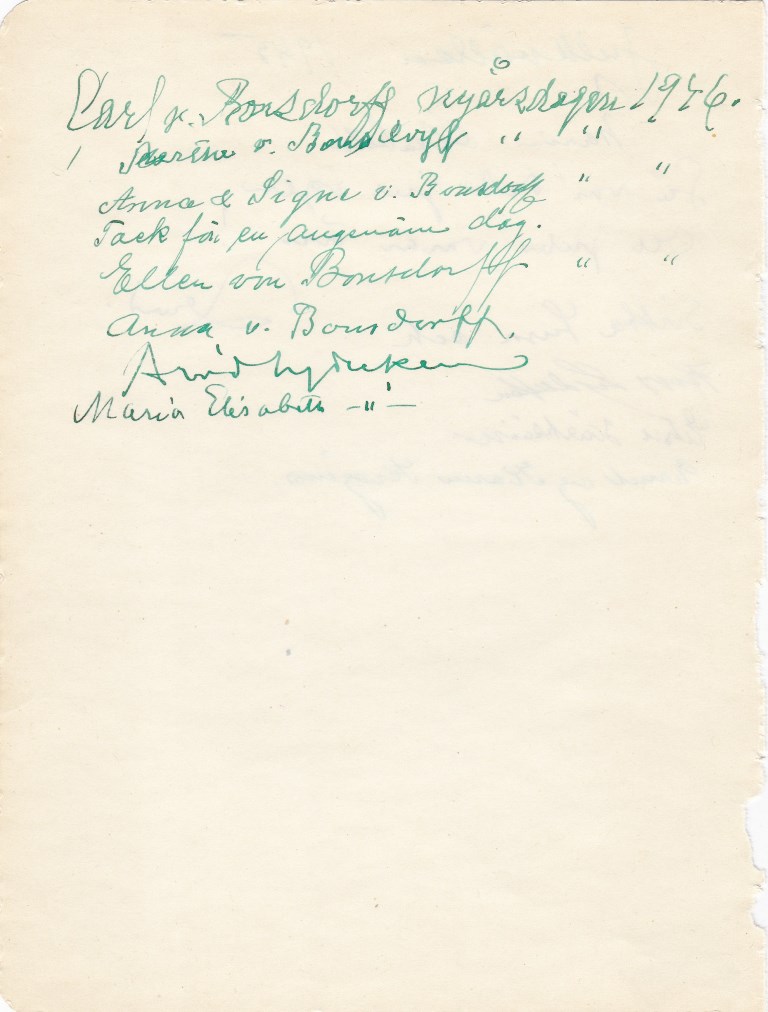 Carl v. Bonsdorff nyårsdagen 1946.
Märtha v. Bonsdorff " "
Anna & Signe v. Bonsdorff " "
Tack för en angenäm dag.
Ellen von Bonsdorff " "
Anna v. Bonsdorff.
Arvid Lydecken
Maria Elisabeth -"-